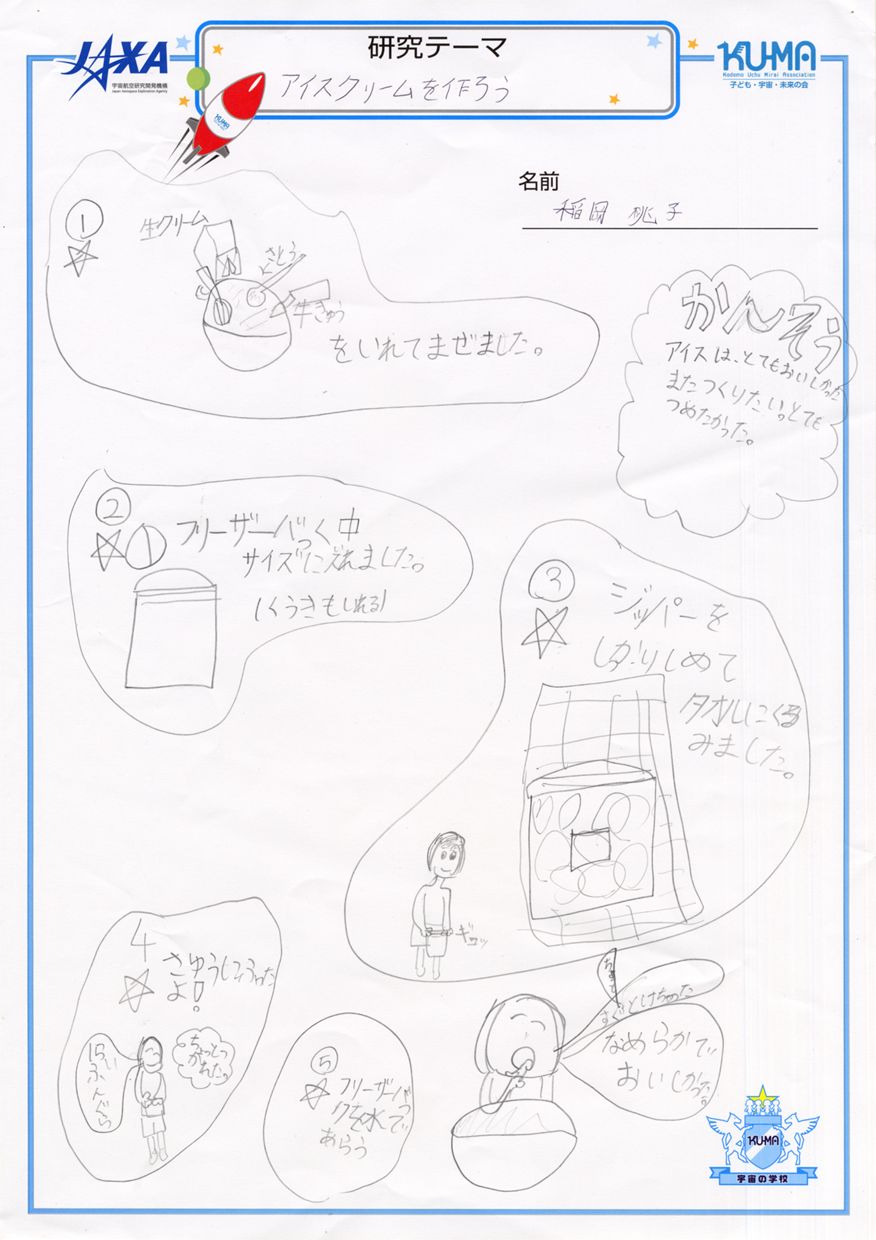 JAXA
宇宙航空研究開発機構
Japan Aerospace Exploration Agency
研究テーマ
アイスクリームを作ろう
KUMA
KUMA
Kodomo Uchu Mirai Association
子ども・宇宙・未来の会
名前
稲岡 桃子
①
生クリーム
さとう
牛きゅう
をいれてまぜました。
かんそう
アイスは、とてもおいしかった
またつくりたい。とても
つめたかった。
②
① フリーザーバっく中
サイズにえれました。
(くうきもしれる)
③
ジッパーを
しかりしめて
タオルにくる
みました。
ギュッ
4
さゆうしょうった
よ!。
15ふんくらい
ちょっとつ
かれた。
⑤
フリーザーバッ
クを水で
あらう
すぐとけちゃった
なめらかで
おいしかった。
KUMA
宇宙の学校